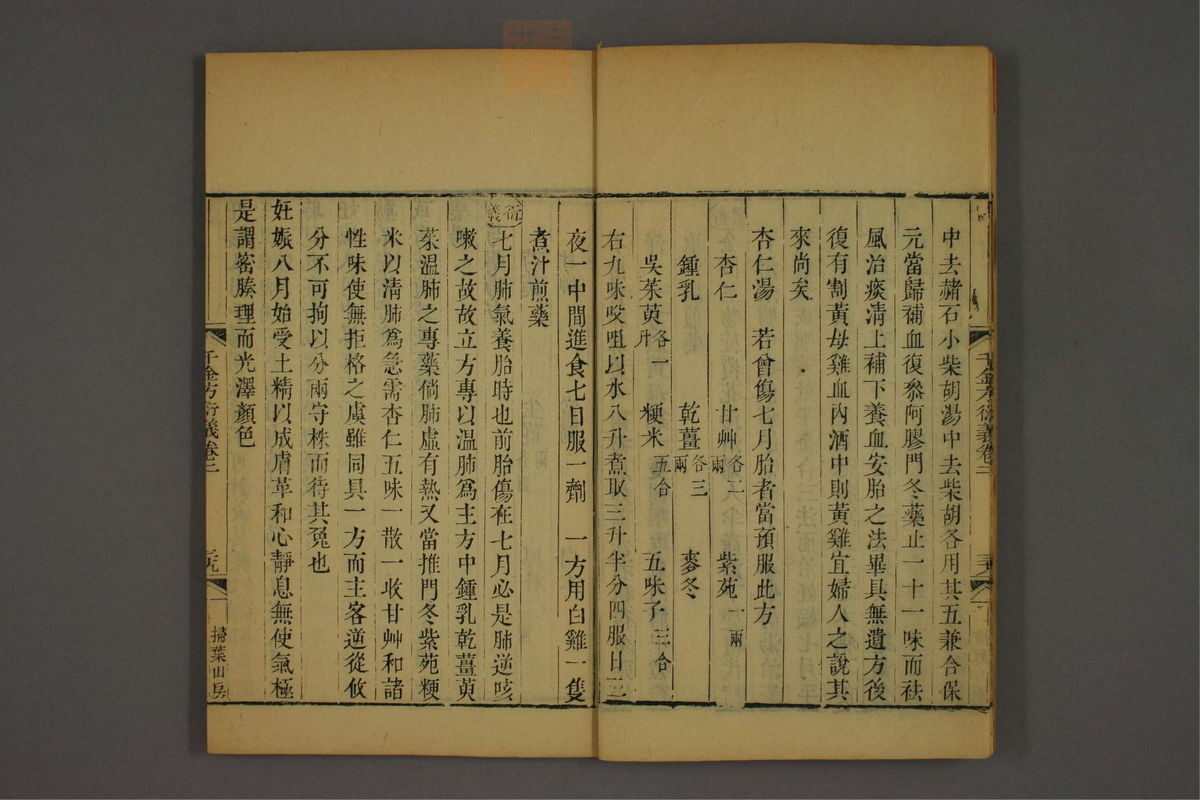 中去赭石小柴胡湯中去柴胡各用其五兼合保
元當歸補血復叅阿膠門冬藥止一十一味而祛
風治痰清上補下養血安胎之法畢具無遺方後
復有割黃母雞血內酒中則黃雞宜婦人之說其
來尚矣
杏仁湯　若曾傷七月胎者當預服此方
杏仁　甘艸各二兩　紫菀一兩
鍾乳　乾薑各三兩　麥冬
吳茱萸各一升　粳米五合　五味子三合
右九味㕮咀以水八升煮取三升半分四服日三
夜一中間進食七日服一劑　一方用白雞一隻
煮汁煎藥
衍義七月肺氣養胎時也前胎傷在七月必是肺逆咳
嗽之故故立方專以温肺爲主方中鍾乳乾薑萸
茱温肺之專藥倘肺虛有熱又當推門冬紫菀粳
米以清肺爲急需杏仁五味一散一收甘艸和諸
性味使無拒格之虞雖同具一方而主客逆從攸
分不可拘以分兩守株而待其兔也
妊娠八月始受土精以成膚革和心靜息無使氣極
是謂密腠理而光澤顏色
千金方衍義卷二
掃葉山房